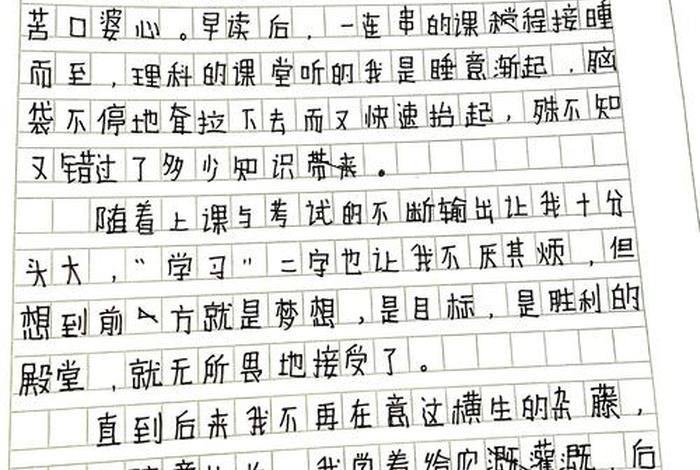 苦口婆心。早读后，一连串的课程接踵
而至，理科的课堂听的我是睡意渐起，脑
袋不停地耷拉下去而又快速抬起，殊不知
又错过了多少知识带来。
随着上课与考试的不断输出让我十分
头大，“学习”二字也让我不厌其烦，但
想到前方就是梦想，是目标，是胜利的
殿堂，就无所畏地接受了。
直到后来我不再在意这横生的杂藤，
我学着给它溉灌溉，后